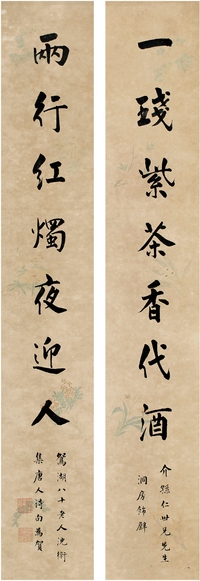 一琖紫茶香代酒
介孫仁世兄先生
洞房飾壁
兩行红燭夜迎人
鴛湖八十老人沈衛
集唐人詩句為賀